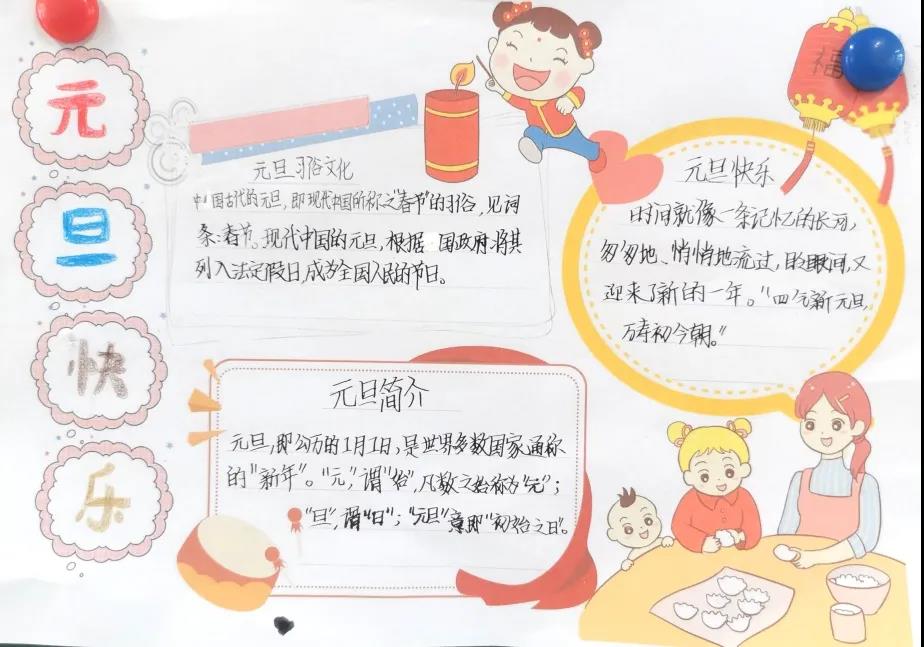 元
旦
快
乐
福
元旦习俗文化
中国古代的元旦,即现代中国所称之"春节"的习俗,见词
条:春节。现代中国的元旦,根据 国政府将其
列入法定假日,成为全国人民的节日。
元旦快乐
时间就像一条记忆的长河,
匆匆地、悄悄地流过,眨眼间,又
迎来了新的一年。"四气新元旦,
万寿初今朝。"
元旦简介
元旦,即公历的1月1日,是世界多数国家通称
的"新年"。"元",谓"始",凡数之始称为"元";
"旦",谓"日";"元旦"意即"初始之日"。